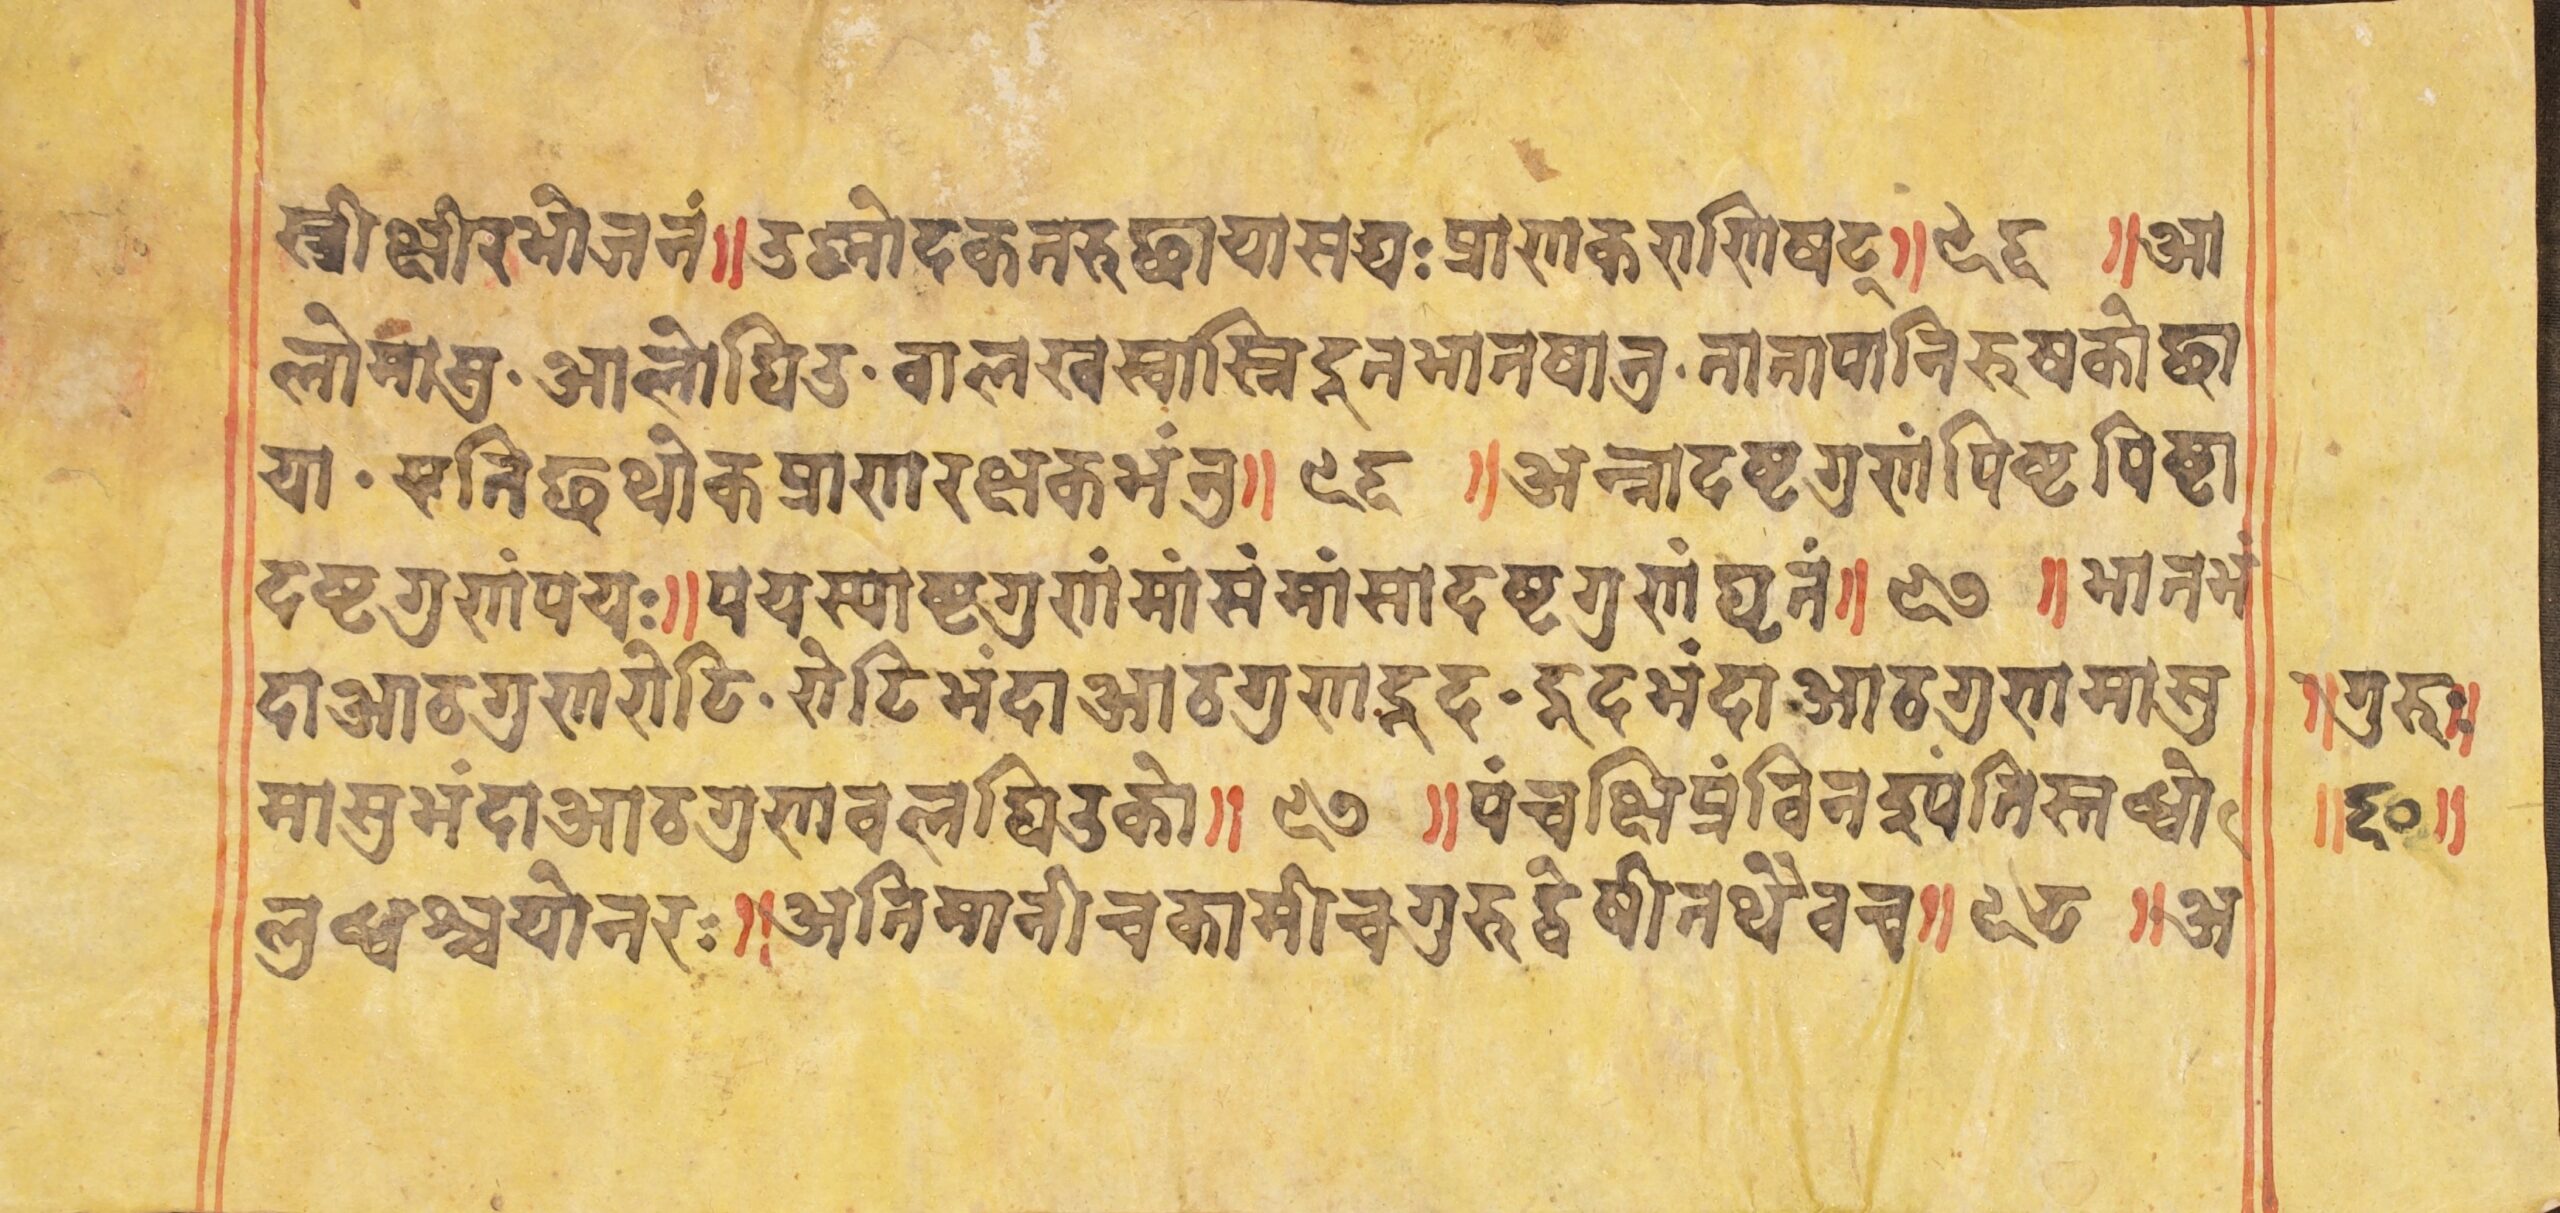 स्त्रीक्षीरभोजनं॥उश्नोदकतरुछायासद्यःप्राणकराणिषट्॥९६॥आ
लोमासु·आलोघिउ·बालखस्वास्निदूतभातषानु·तातापानिरुषकोछा
या·एतिछथोकप्राणरक्षकभंनु॥९६॥अन्नादष्टगुणंपिष्टपिष्टा
दष्टगुणंपयः॥पयस्याष्टगुणंमांसंमांसादष्टगुणंघृतं॥९७॥भातभं
दाआठगुणरोटि·रोटिभंदाआठगुणदूद·दूदभंदाआठगुणमासु
मासुभंदाआठगुणवलघिउको॥९७॥पंचक्षिप्रंविनश्पंतिस्तब्धो
लुब्धश्चयोनरः॥अतिमानीचकामीचगुरुद्वेषीतथैवच॥९८॥अ
॥गुरुः॥
॥६०॥